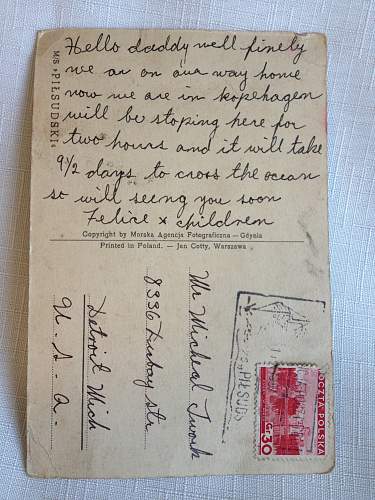 M/S „PIŁSUDSKI"
Hello daddy well finely
we ar on our way home
now we are in kopehagen
will be stoping here for
two hours and it will take
9½ days to cross the ocean
so will seeing you soon
Felice x children
Copyright by Morska Agencja Fotograficzna — Gdynia
Printed in Poland. — Jan Cotty, Warszawa
Mr Micheal
8336 str
Detroit Mich
U. S. A.
PIŁSUDS
POCZTA POLSKA
Gr 30